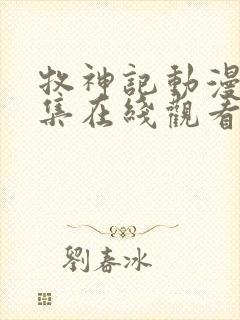 牧神記動漫
集在綫觀看
劉春冰